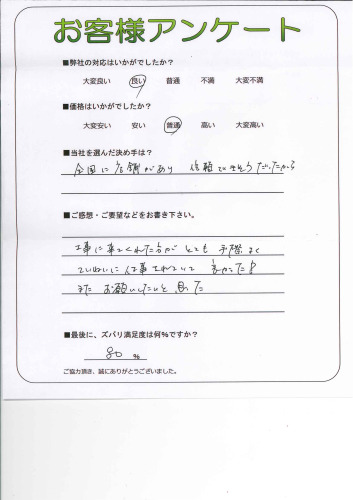 お客様アンケート
■弊社の対応はいかがでしたか？
大変良い 良い 普通 不満 大変不満
■価格はいかがでしたか？
大変安い 安い 普通 高い 大変高い
■当社を選んだ決め手は？
全国に店舗があり 信頼できそうだったから
■ご感想・ご要望などをお書き下さい。
工事に来てくれた方が とても 手際よく
ていねいに 仕事をされていて 良かったです
また お願いしたいと 思った
■最後に、ズバリ満足度は何％ですか？
80 %
ご協力頂き、誠にありがとうございました。